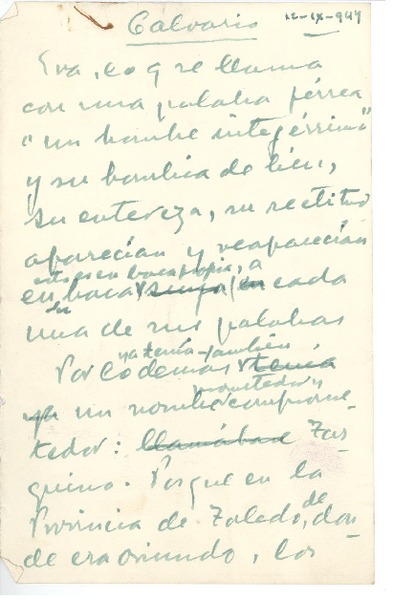 Calvario
12-IX-947
Era, lo q se llama
con una palabra férrea
"un hombre integérrimo"
y su hombría de bien,
su entereza, su rectitud
aparecían y reaparecían
esto es en boca propia, a
en boca suya en cada
una de sus palabras
ya tenía también
Por lo demás tenía
ya un nombre comprome-
tedor: llamábase Tar-
quino. Porque en la
Provincia de Toledo, de
don-
de era oriundo, los